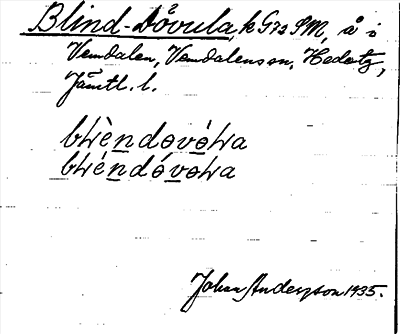 Blind-Dåvula, k G72 SM, å i
Vemdalen, Vemdalens sn, Hede tg,
Jämtl. l.
blèndovóla
bléndóvola
Johan Anderzon 1935.